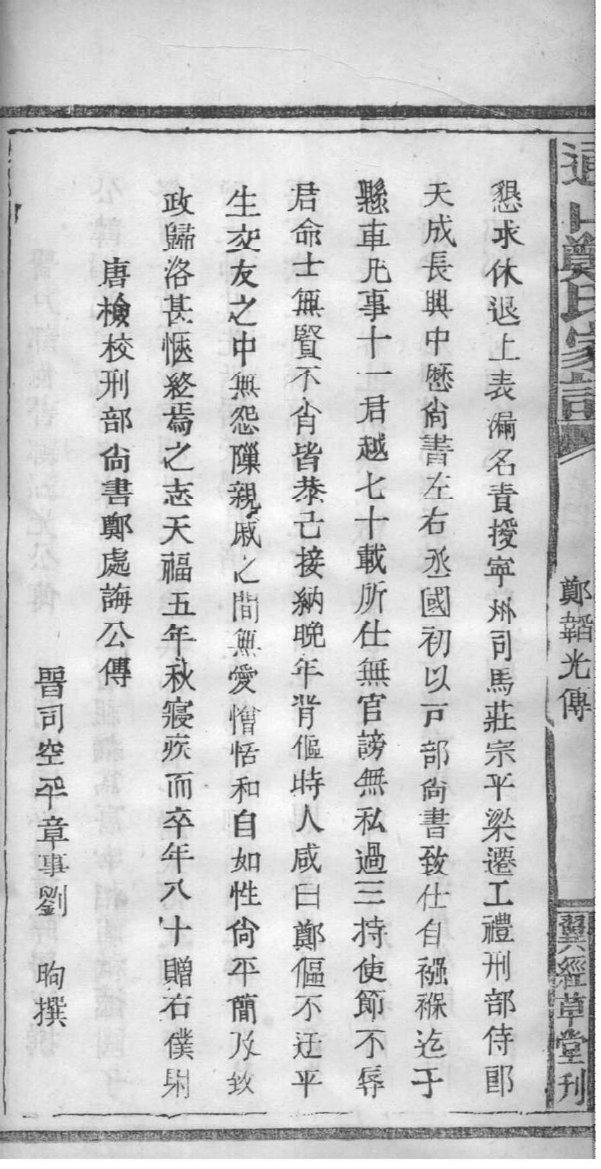 鄭氏家譜
鄭韜光傳
翼經草堂刊
懇求休退上表漏名責授寧州司馬莊宗平梁遷工禮刑部侍郎
天成長興中歷尙書左右丞國初以戶部尙書致仕自襁褓迄于
縣車凡事十一君越七十載所仕無官謗無私過三持使節不辱
君命士無賢不肖皆恭己接納晚年背傴時人咸曰鄭傴不迂平
生交友之中無怨隟親戚之間無愛憎恬和自如性尙平簡及致
政歸洛甚愜終焉之志天福五年秋寢疾而卒年八十贈右僕射
唐檢校刑部尙書鄭處誨公傳
晉司空平章事劉　昫撰